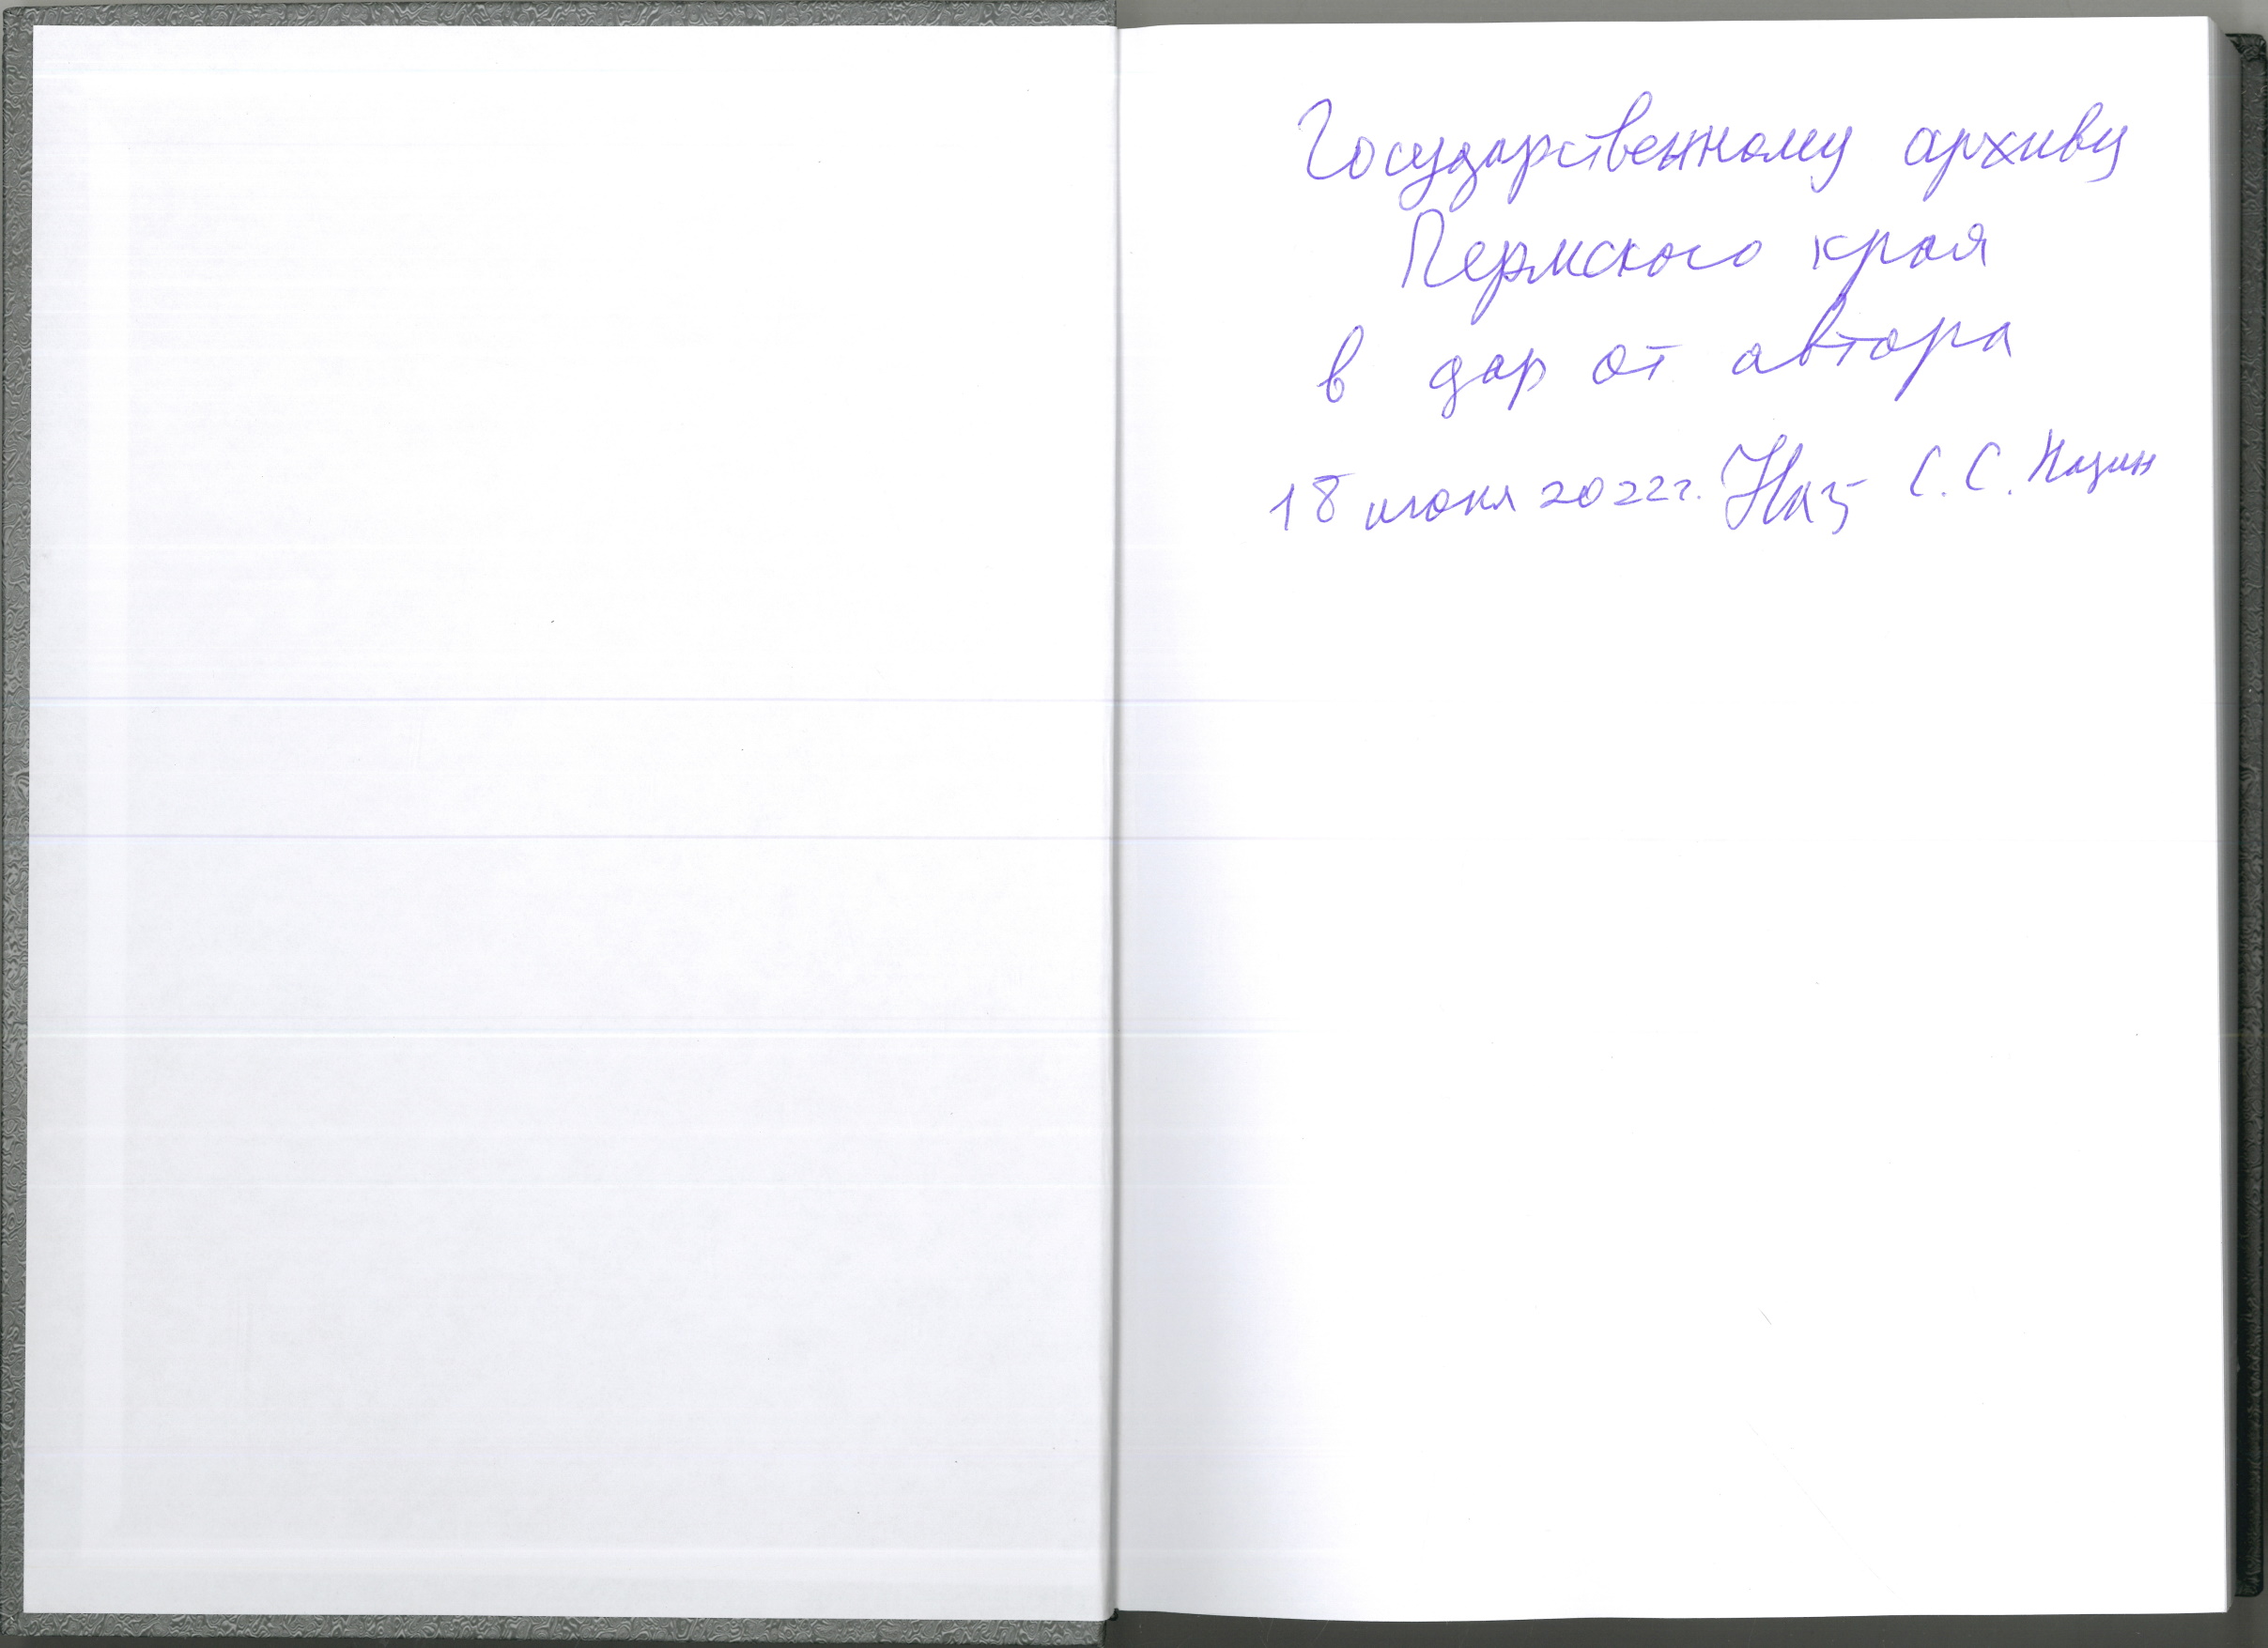 Государственному архиву
Пермского края
в дар от автора
18 июня 2022г. Наз С. С. Назин